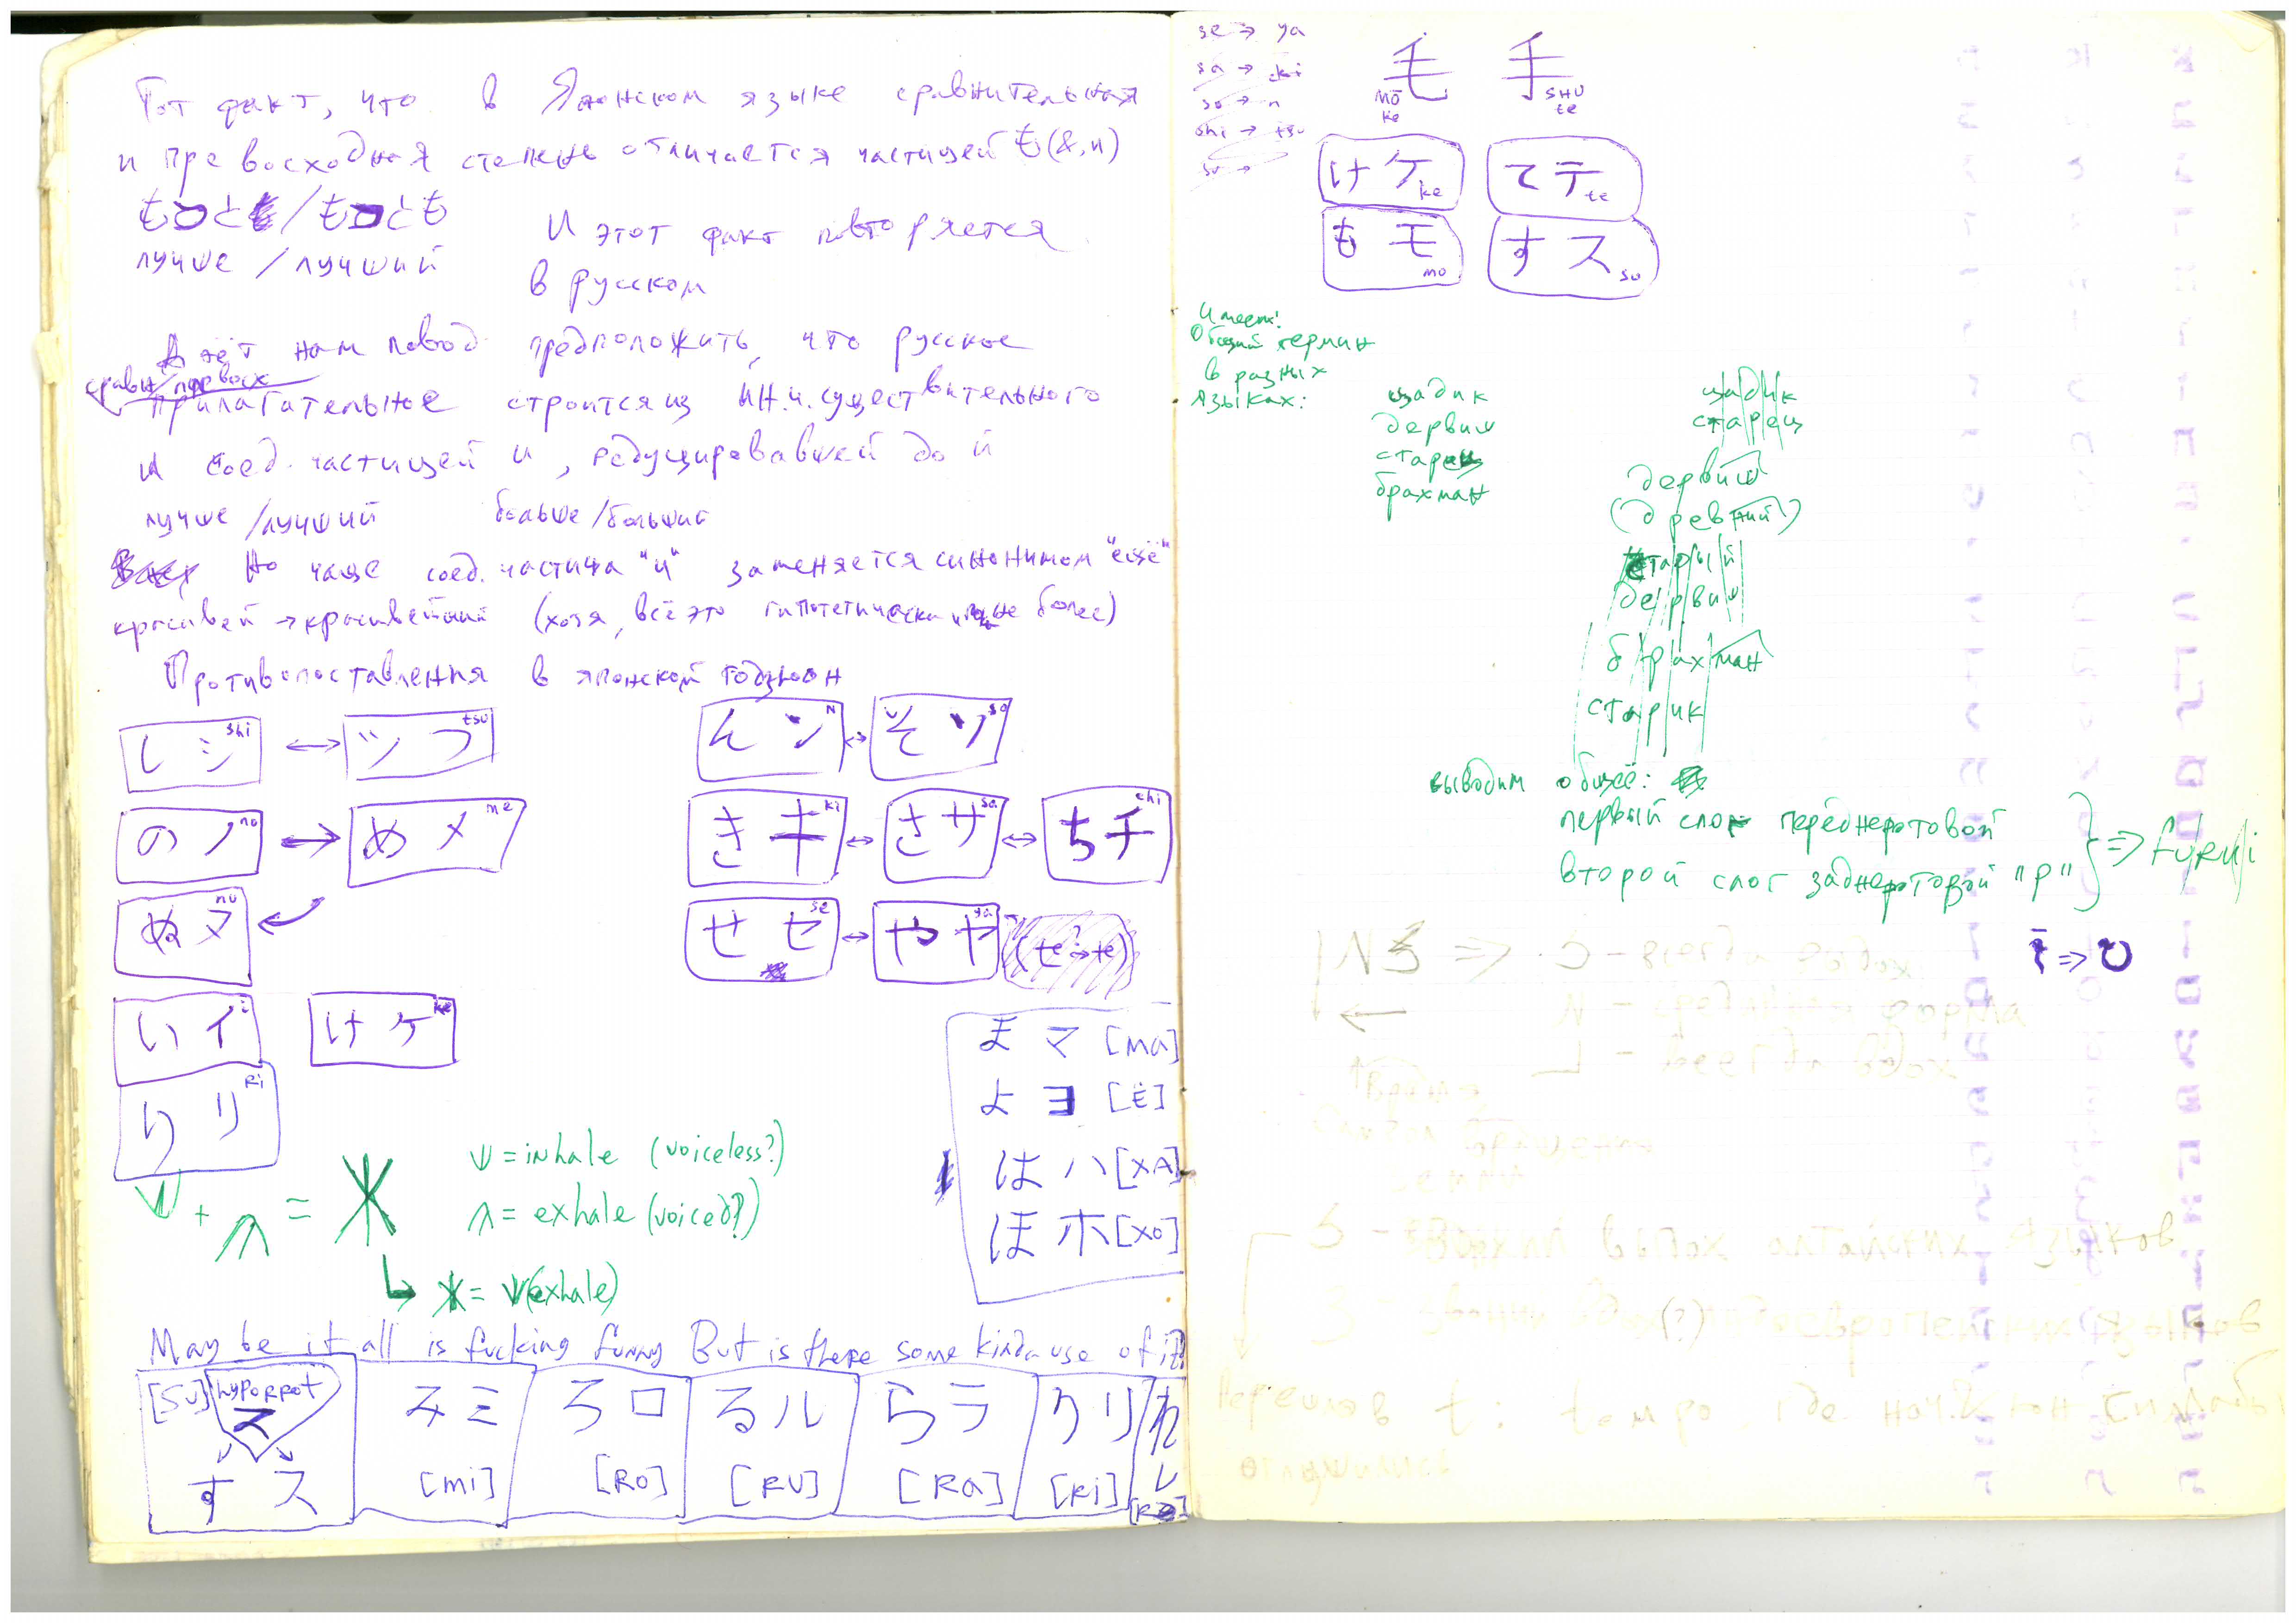 Тот факт, что в Японском языке сравнительная
и превосходная степень отличается частицей も(&,и)
もっと/もっとも
лучше / лучший
И этот факт повторяется
в русском
Даёт нам повод предположить, что русское
сравн/превосх
прилагательное строится из им.ч. существительного
и соед. частицей и, редуцировавшей до й
лучше/лучший больше/больший
Но чаще соед. частица "и" заменяется синонимом "ещё"
красивей → красивейший (хотя, всё это гипотетически, не более)
Противопоставления в японской годзюон
し シ shi ↔ ツ つ tsu
の ノ no → め メ me
ぬ ヌ nu
い イ i
け ケ ke
り リ Ri
ん ン N ↔ そ ソ so
き キ ki ↔ さ サ sa ↔ ち チ chi
せ セ se ↔ や ヤ ya (せ → te)
ま マ [ma]
よ ヨ [Ё]
は ハ [XA]
ほ ホ [XO]
ѱ = inhale (voiceless?)
V + Λ = Ж
Λ = exhale (voiced?)
Ж = V(exhale)
May be it all is fucking funny But is there some kinda use of it?
[SU] ス
す ス
み ミ [mi]
ろ ロ [RO]
る ル [RU]
ら ラ [Ra]
り リ [Ri]
れ レ
se → ya
sa → ki
so → n
shi → tsu
su →
毛 手
MŌ ke
SHU te
け ケ ke
て テ te
も モ mo
す ス su
Имеем:
Общий термин
в разных
языках:
цадик
дервиш
старец
брахман
цадик
старец
дервиш
(древний)
старый
дервиш
брахман
старик
выводим общее:
первый слог переднеротовой
второй слог заднеротовой "р"
⇒ furui